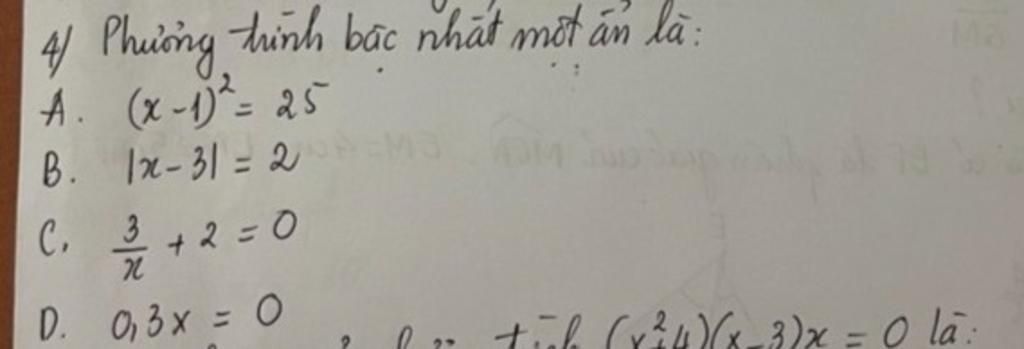 4) Phương trình bậc nhất một ẩn là:
A. (x-1)² = 25
B. |x-3| = 2
C. 3/x + 2 = 0
D. 0,3x = 0
(x²+4)(x-3)x = 0 là: